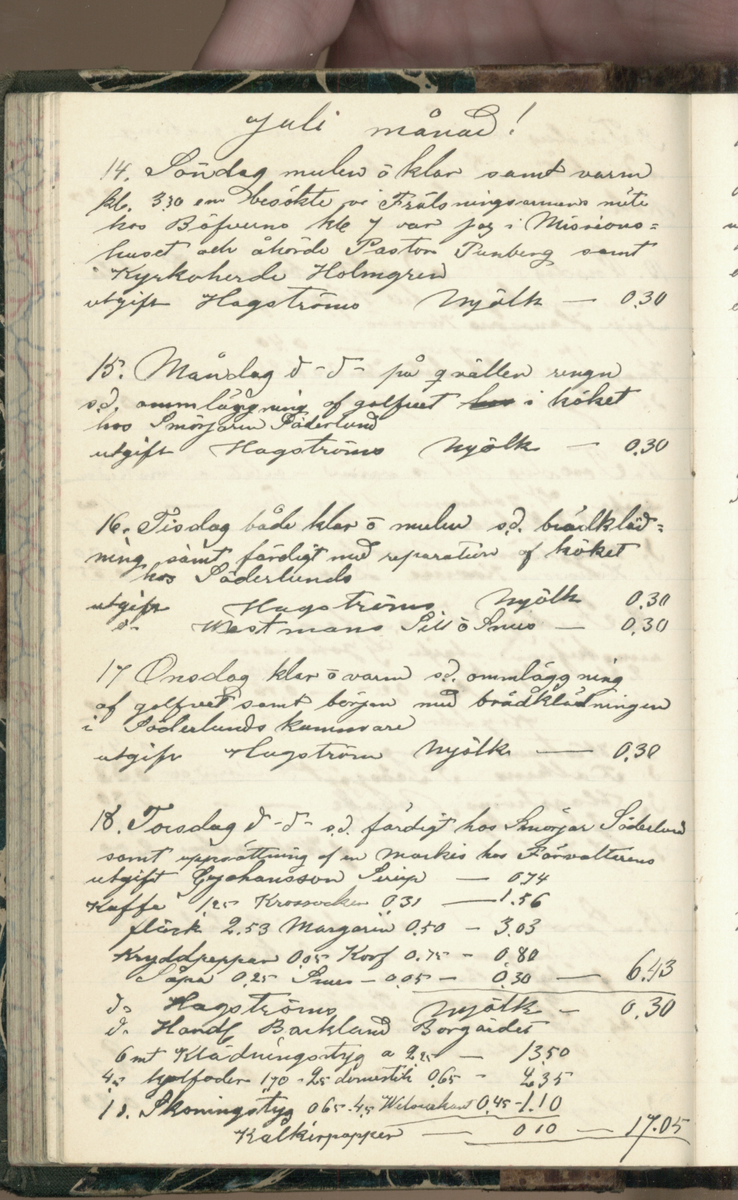 Juli månad!
14. Söndag mulen o klar samt varm
kl. 3.30 em besökte vi Frälsningsarmens möte
hos Böfverns kl 7 var jag i Missions=
huset och åhörde Pastor Tunberg samt
Kyrkoherde Holmgren
utgift Hagströms Mjölk — 0.30
15. Måndag d-d- på qvällen regn
s.d. ommläggning af golfvet i köket
hos Smörjaren Söderlund
utgift Hagströms Mjölk — 0.30
16. Tisdag både klar o mulen s.d. brädkläd=
ning samt färdigt med reparation af köket
hos Söderlunds
utgift Hagströms Mjölk 0.30
d. Westmans Sill o Snus — 0.30
17 Onsdag klar o varm s.d. ommläggning
af golfvet samt börjen med brädklädningen
i Söderlunds kammare
utgift Hagström Mjölk — 0.30
18. Torsdag d-d- s.d. färdigt hos Smörjar Söderlund
samt uppsättning af en markis hos Förvaltarens
utgift Johansson Sirup — 0.74
Kaffe 1.25 Krossocker 0.31 — 1.56
fläsk 2.53 Margarin 0.50 — 3.03
Kryddpeppar 0.05 Korf 0.75 — 0.80
Såpa 0.25 Snus — 0.05 — 0.30 — 6.43
d. Hagströms Mjölk — 0.30
d. Handl Backlund Borgärdet
6 mt Klädningstyg a 2.25 — 13.50
4.5 kjolfoder 1.70 - 25 domestik 0.65 - 2.35
1 d. Skoningstyg 0.65 4.5 0.45 - 1.10
0.10 — 17.05